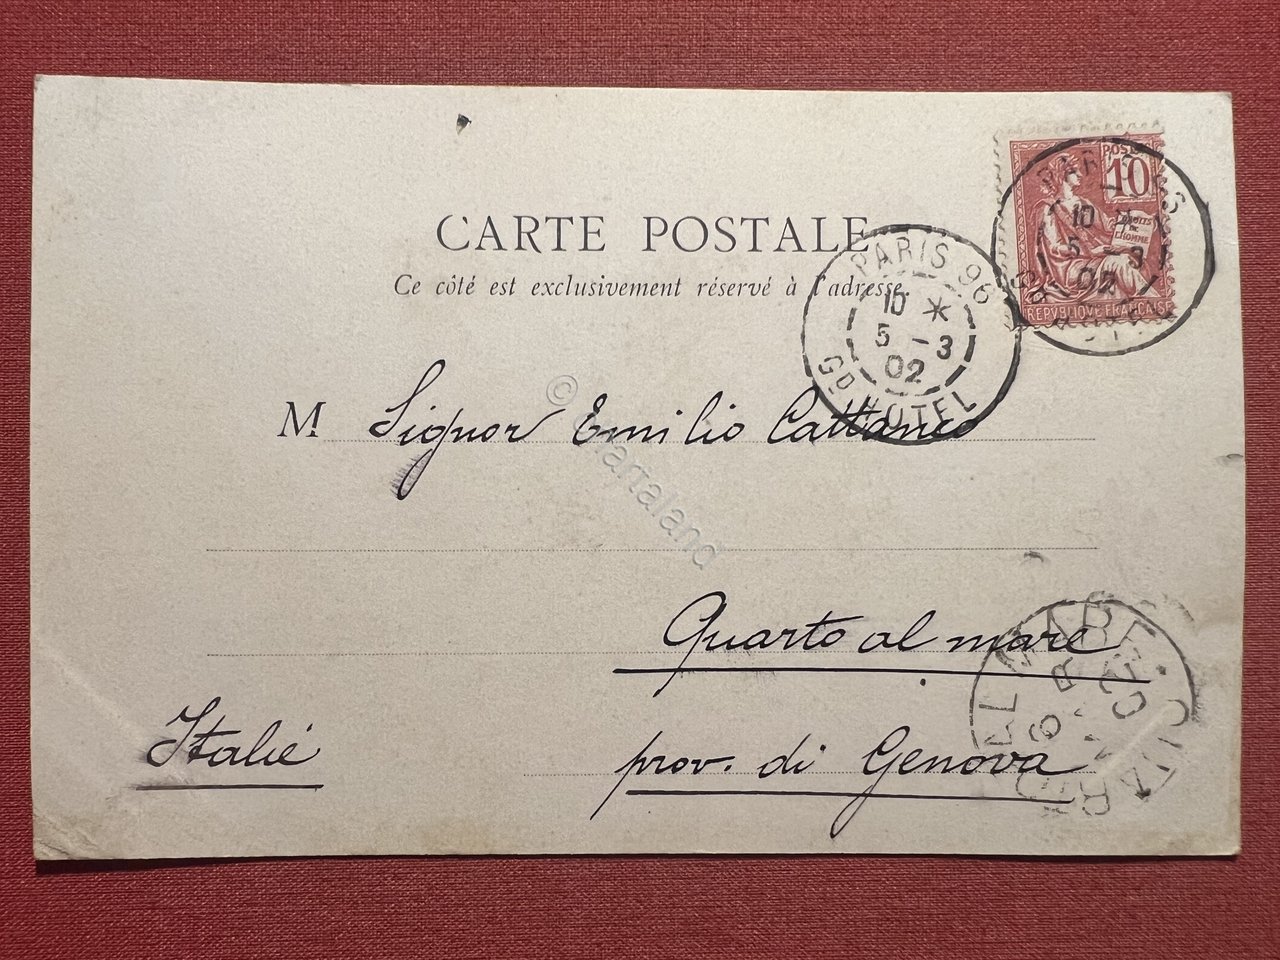 CARTE POSTALE
Ce côté est exclusivement réservé à l'adresse
POSTES
10
DROITS DE L'HOMME
REPVBLIQVE FRANÇAISE
PARIS 96
10 *
5 - 3
02
PARIS 96
10 *
5 - 3
02
Gᴰ HOTEL
M Signor Emilio Cattaneo
Quarto al mare
Italie
prov. di Genova
QUARTO DEL MARE
6
02
© Chartaland